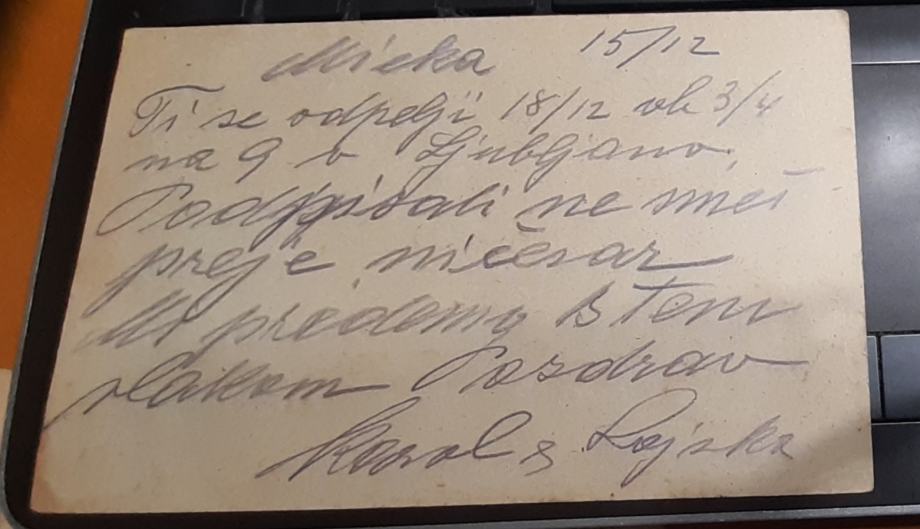 Micka 15/12
Ti se odpelji 18/12 ob 3/4
na 9 v Ljubljano.
Podpisati ne smeš
preje ničesar
Mi pridemo s tem
vlakom Pozdrav
Karol & Lojzka